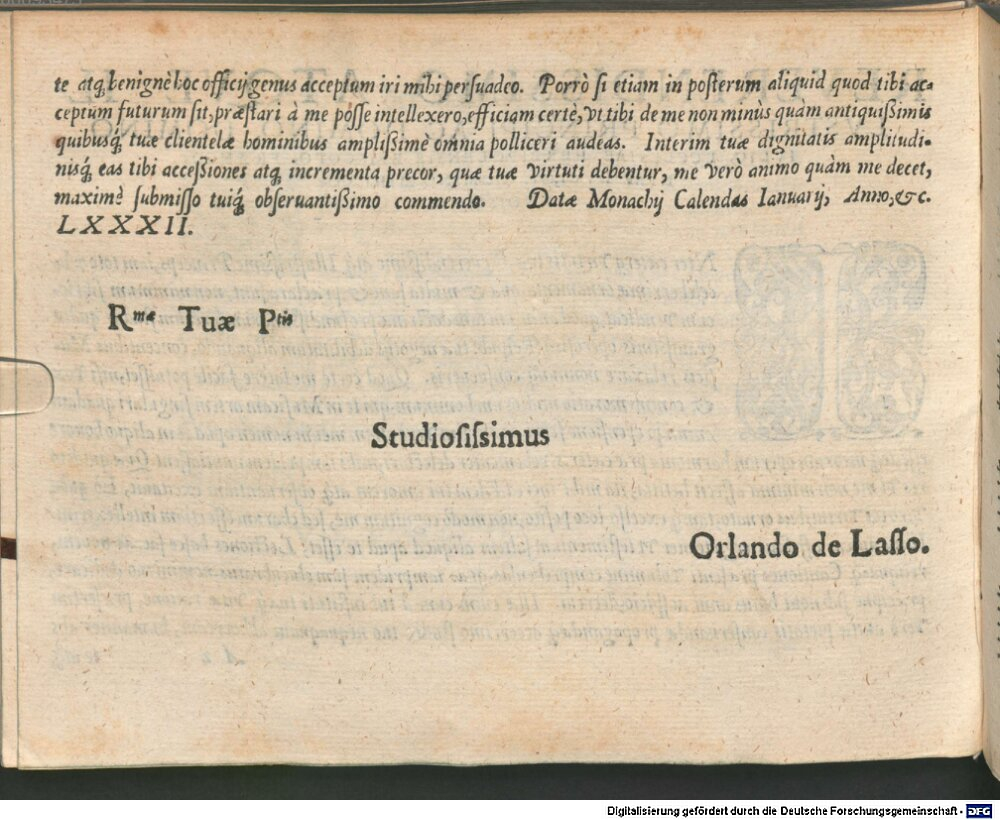 te atq́; benignè hoc officij genus acceptum iri mihi persuadeo. Porrò si etiam in posterum aliquid quod tibi ac-
ceptum futurum sit, præstari à me posse intellexero, efficiam certè, vt tibi de me non minùs quàm antiquissimis
quibusq́; tuæ clientelæ hominibus amplissimè omnia polliceri audeas. Interim tuæ dignitatis amplitudi-
nisq́; eas tibi accessiones atq́; incrementa precor, quæ tuæ virtuti debentur, me verò animo quàm me decet,
maximè submisso tuiq́; obseruantissimo commendo. Datæ Monachij Calendas Ianuarij, Anno, &c.
LXXXII.
Rmæ Tuæ Ptis
Studiosissimus
Orlando de Lasso.
Digitalisierung gefördert durch die Deutsche Forschungsgemeinschaft - DFG